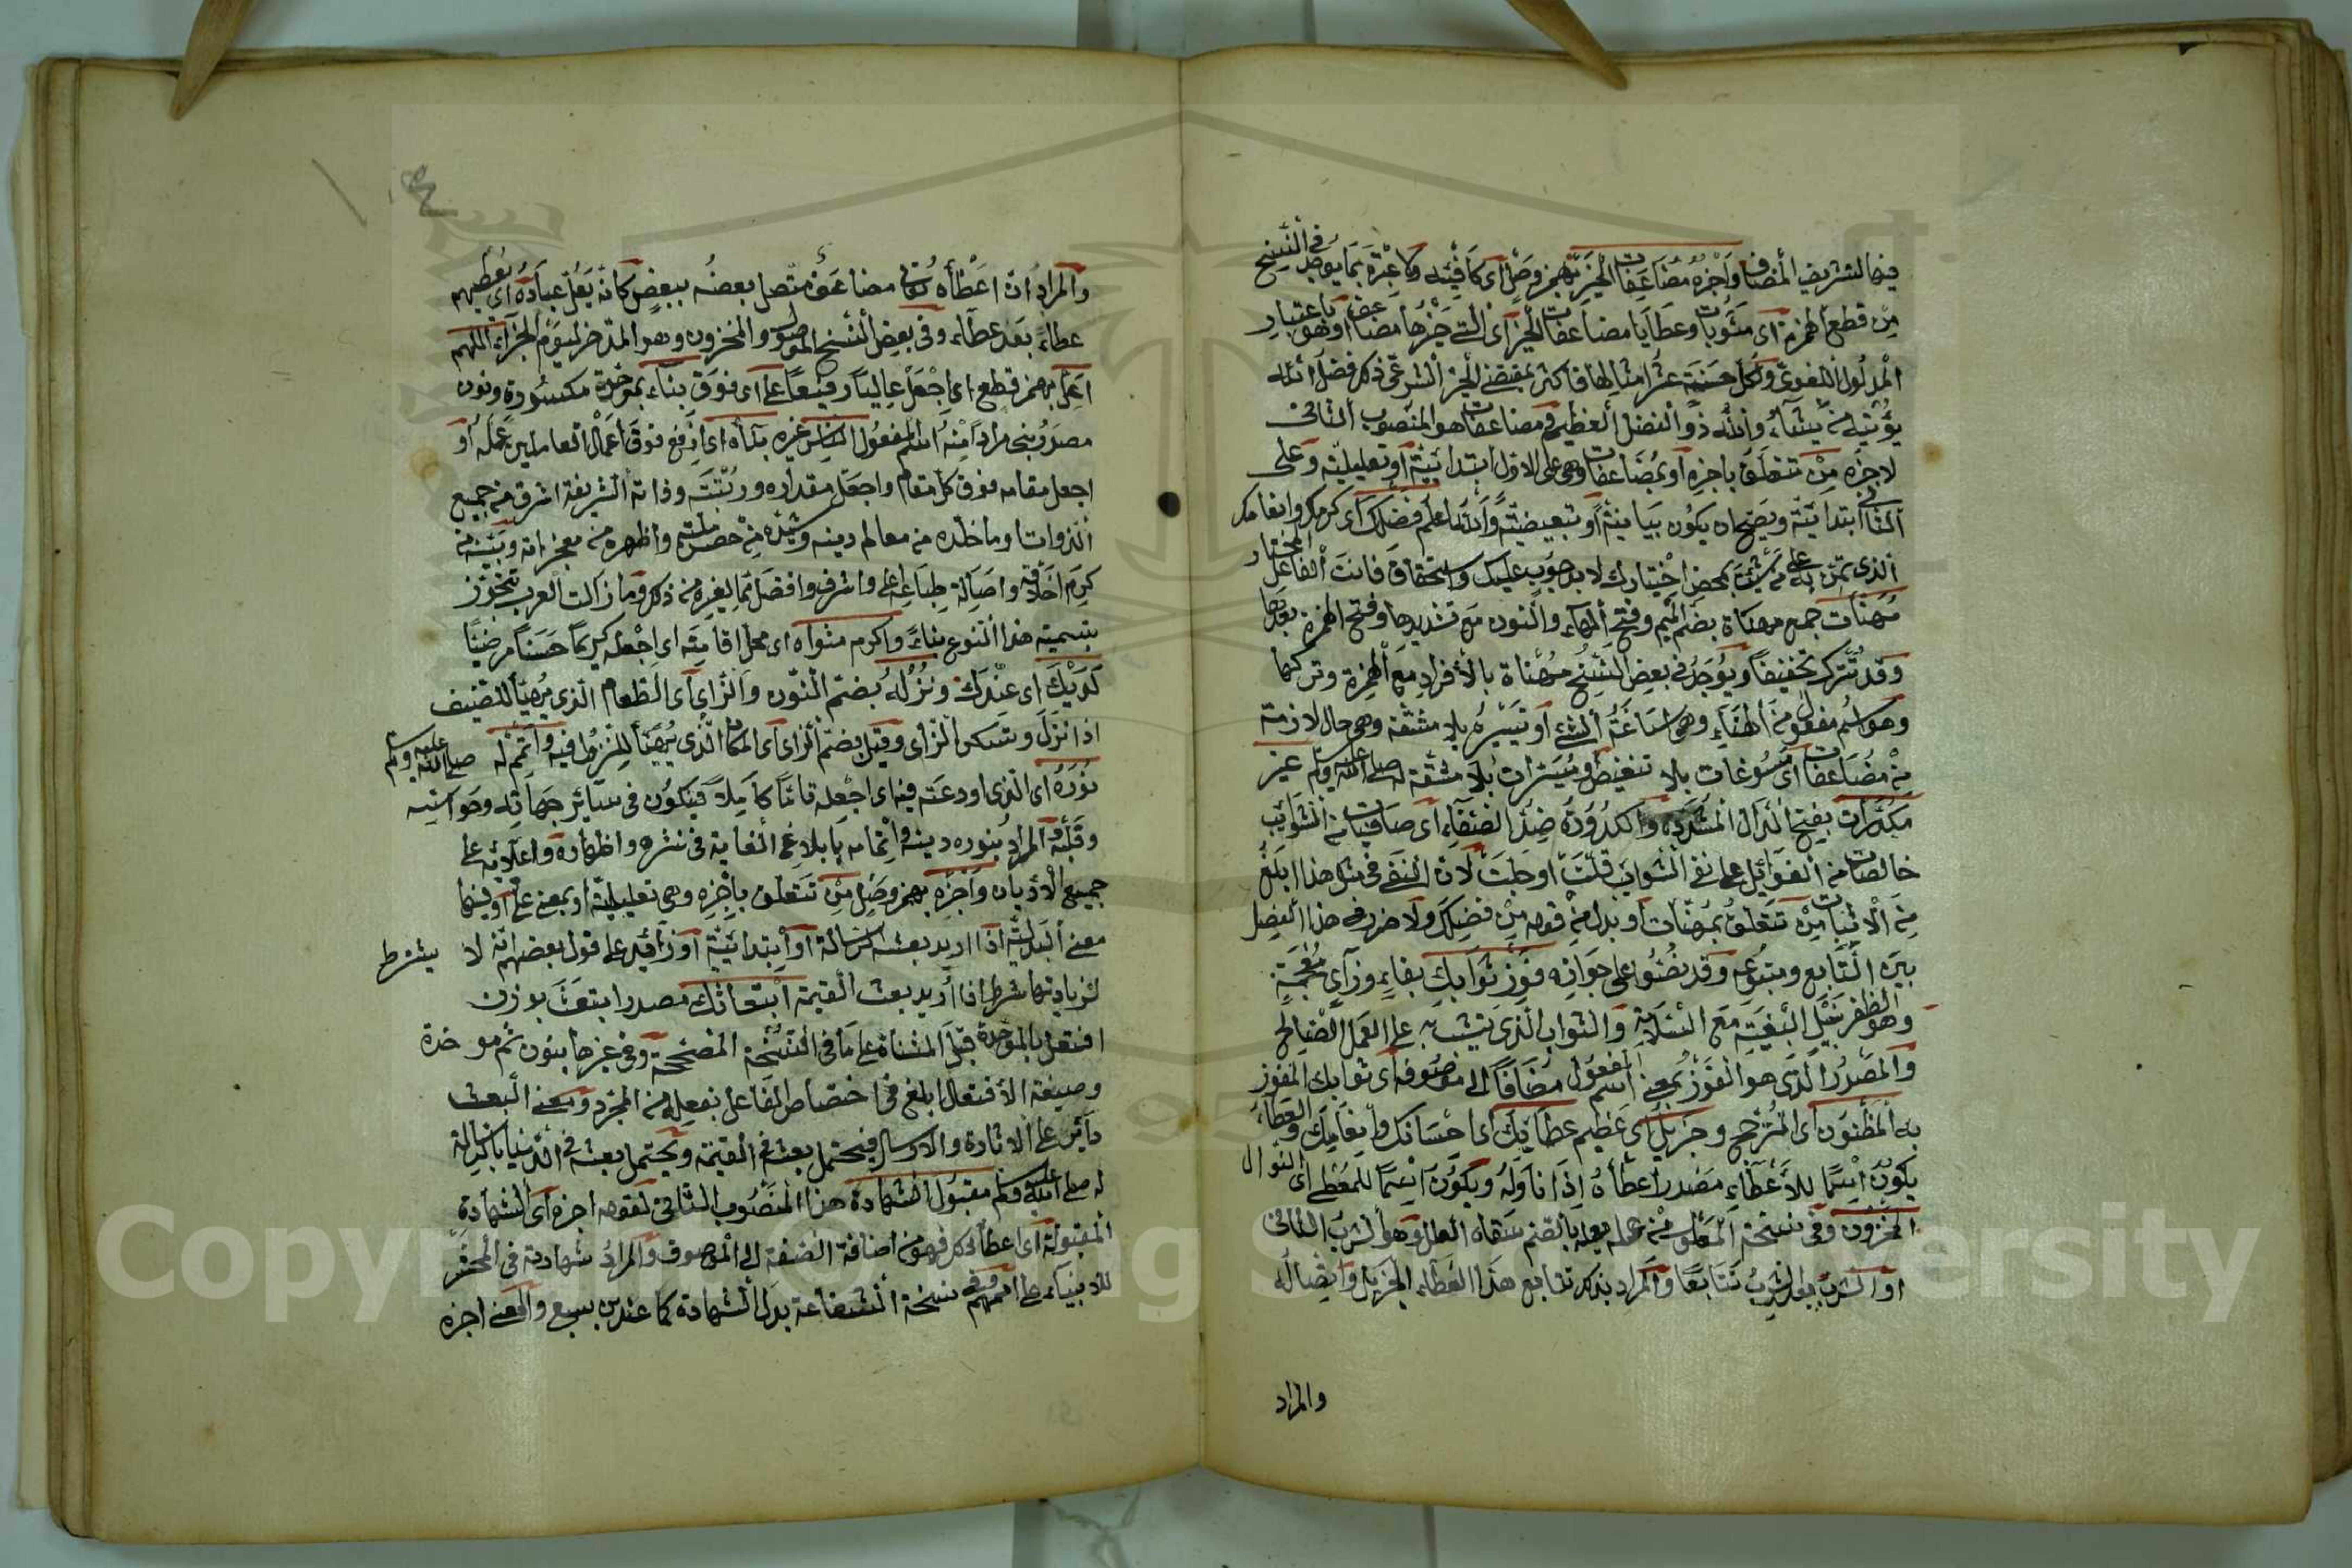 فيها لتشريف المضاف واجزه مضاعفات الخير بهمز وصل اى كافئه ولا عبرة بما يوجد فى النسخ
من قطع الهمزة اى مثوبات وعطايا مضاعفات الخير اى التى خيرها مضاعف وهو باعتبار
المدلول اللغوى ولكل حسنة عشر امثالها فاكثر بمقتضى الخير الشرعى ذكر فضل الله
يؤتيه من يشاء والله ذو الفضل العظيم فمضاعفات هو المنصوب الثانى
لاجزه من تتعلق باجزه او بمضاعفات وهى على الاول ابتدائية او تعليلية وعلى
الثانى ابتدائية ويصح ان يكون بيانية او تبعيضية والله اعلم فضلك اى كرمك وانعامك
الذى تمن به على من شئت بمحض اختيارك لا بوجوب عليك واستحقاق فانت الفاعل المختار
مهنات جمع مهناة بضم الميم وفتح الهاء والنون مع تشديدها وفتح الهمزة بعدها
وقد تترك تخفيفا ويوجد فى بعض النسخ مهناة بالافراد مع الهمزة وتركها
وهو اسم مفعول من الهناء وهى اساغة الشئ او تيسره بلا مشقة وهى حال لازمة
من مضاعفات اى مسوغات بلا تنغيص او ميسرات بلا مشقة له صلى الله عليه وسلم غير
مكدرات بفتح الدال المشددة والكدورة ضد الصفاء اى صافيات من الشوائب
خالصات من الغوائل على نفى الشوائب قلت او جلت لان النفى فى مثل هذا ابلغ
من الاثبات من تتعلق بمهنات او بدل من قوله من فضلك ولا ضرر فى هذا الفصل
بين التابع ومتبوعه وقد نصوا على جوازه فوز ثوابك بفاء وزاى معجمة
وهو الظفر بنيل البغية مع السلامة والثواب الذى يثيب به على العمل الصالح
والمصدر الذى هو الفوز بمعنى اسم المفعول مضافا الى موصوفه اى ثوابك المفوز
به المظنون اى المرجح وجزيل اى عظيم عطائك اى احسانك وانعامك والعطاء
يكون اسما للاعطاء مصدر اعطاه اذا ناوله ويكون اسما للمعطى اى النوال
المخزون وفى نسخة المعلول من عله يعله بالضم سقاه العلل وهو الشرب الثانى
او الشرب بعد الشرب تتابعا والمراد بذكر تتابع هذا العطاء الجزيل واتصاله
والمراد
والمراد ان اعطاه مضاعف متصل بعضه ببعض كانه يعل عباده اى يعطيهم
عطاء بعد عطاء وفى بعض النسخ الموصول والمخزون وهو المدخر ليوم الجزاء اللهم
اعل بهمز قطع اى اجعل عاليا رفيعا على اى فوق بناء بموحدة مكسورة ونون
مصدر بنى مرادا منه اسم المفعول الناس غيره بناءه اى ارفع فوق اعمال العاملين عمله او
اجعل مقامه فوق كل مقام واجعل مقداره ورتبته وذاته الشريفة اشرف من جميع
الذوات وما خلده من معالم دينه وشيده من حصن ملته واظهره من معجزاته وبينه من
كرم اخلاقه واصالة طباعه اعلى واشرف وافضل مما لغيره من ذكر وما زالت العرب تتجوز
بتسمية هذا النوع بناء واكرم مثواه اى محل اقامته اى اجعله كريما حسنا مرضيا
لديك اى عندك ونزله بضم النون والزاى اى الطعام الذى يهيأ للضيف
اذا نزل وتسكن الزاى وقيل بضم الزاى اى المكان الذى يهيأ للنزول فيه واتمم له صلى الله عليه وسلم
نوره اى الذى اودعته فيه اى اجعله تاما كاملا فيكون فى سائر جهاته وحواسه
وقلبه المراد بنوره دينه واتمامه بابلاغه الغاية فى نشره واظهاره واعلائه على
جميع الاديان واجزه بهمز وصل من تتعلق باجزه وهى تعليلية او بمعنى على او فيها
معنى البدلية اذا اريد بعثه لرسالة او ابتدائية او زائدة على قول بعضهم انه لا يشترط
لزيادتها شرط اذا اريد بعث القيمة ابتعاثك مصدر ابتعث بوزن
افتعل بالموحدة قبل المثناة على ما فى النسخة المصححة وفى غيرها بنون ثم موحدة
وصيغة الافتعال ابلغ فى اختصاص الفاعل بفعله من المجرد ومعنى البعث
دائر على الاثارة والارسال فيحتمل بعثه فى القيمة ويحتمل بعثه فى الدنيا بالرسالة
له صلى الله عليه وسلم مقبول الشهادة هذا المنصوب الثانى لقوله اجزه اى الشهادة
المقبولة اى اعطا لكل فهو من اضافة الصفة الى الموصوف والمراد شهادته فى المحشر
للانبياء على اممهم وفى نسخة الشفاعة بدل الشهادة كما عند بن سبع والمعنى اجزه